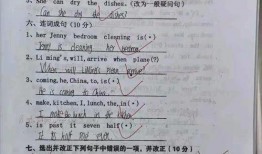 3. She can dry the dishes. (改为一般疑问句)
Can she dry the dishes?
六、连词成句 (10分)
1. her Jenny bedroom cleaning is(.)
Jenny is cleaning her bedroom.
2. Li ming's, will, arrive when plane(?)
When will Li ming's plane
3. coming, he, China, to, is(.)
He is coming to China.
4. make, kitchen, I, lunch, the, in(.)
I make lunch in the kitchen.
5. is past it seven half(.)
It is half past seven.
七、选出并改正下列句子中错误的一项,并改正(10分)